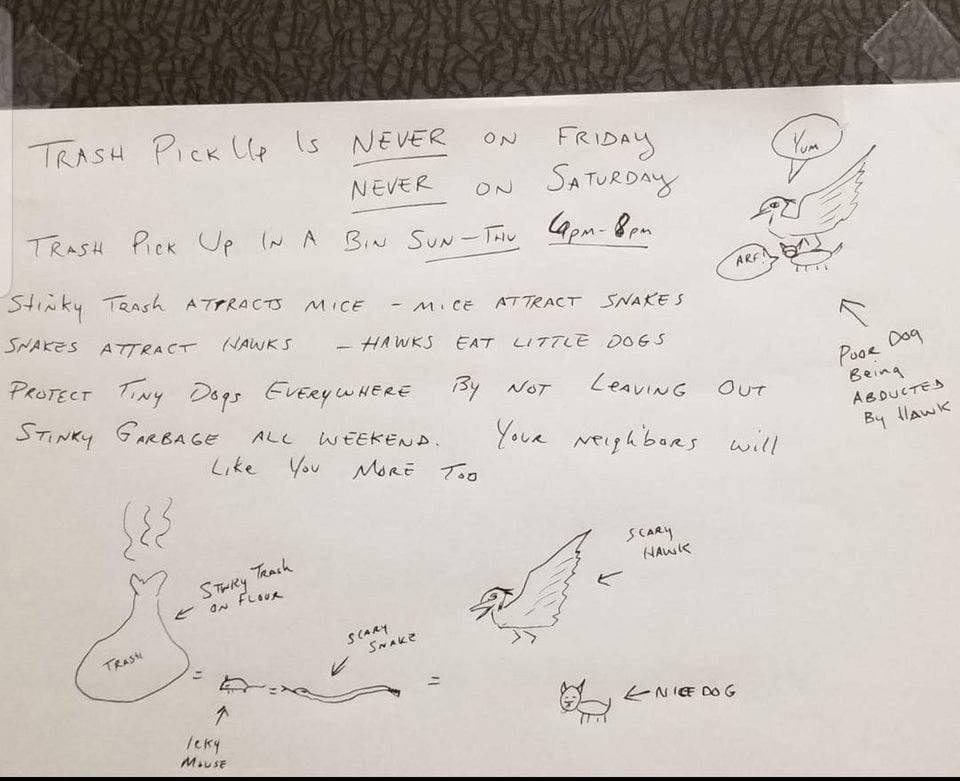 TRASH PICK UP IS NEVER ON FRIDAY
NEVER ON SATURDAY
TRASH PICK UP IN A BIN SUN-THU 6pm-8pm
Stinky Trash ATTRACTS MICE - MICE ATTRACT SNAKES
SNAKES ATTRACT HAWKS - HAWKS EAT LITTLE DOGS
PROTECT TINY DOGS EVERYWHERE BY NOT LEAVING OUT
STINKY GARBAGE ALL WEEKEND. YOUR NEIGHBORS WILL
LIKE YOU MORE TOO
YUM
ARF!
POOR DOG
BEING
ABDUCTED
BY HAWK
STINKY TRASH
ON FLOUR
TRASH
=
ICKY
MOUSE
=
SCARY
SNAKE
=
SCARY
HAWK
NICE DOG